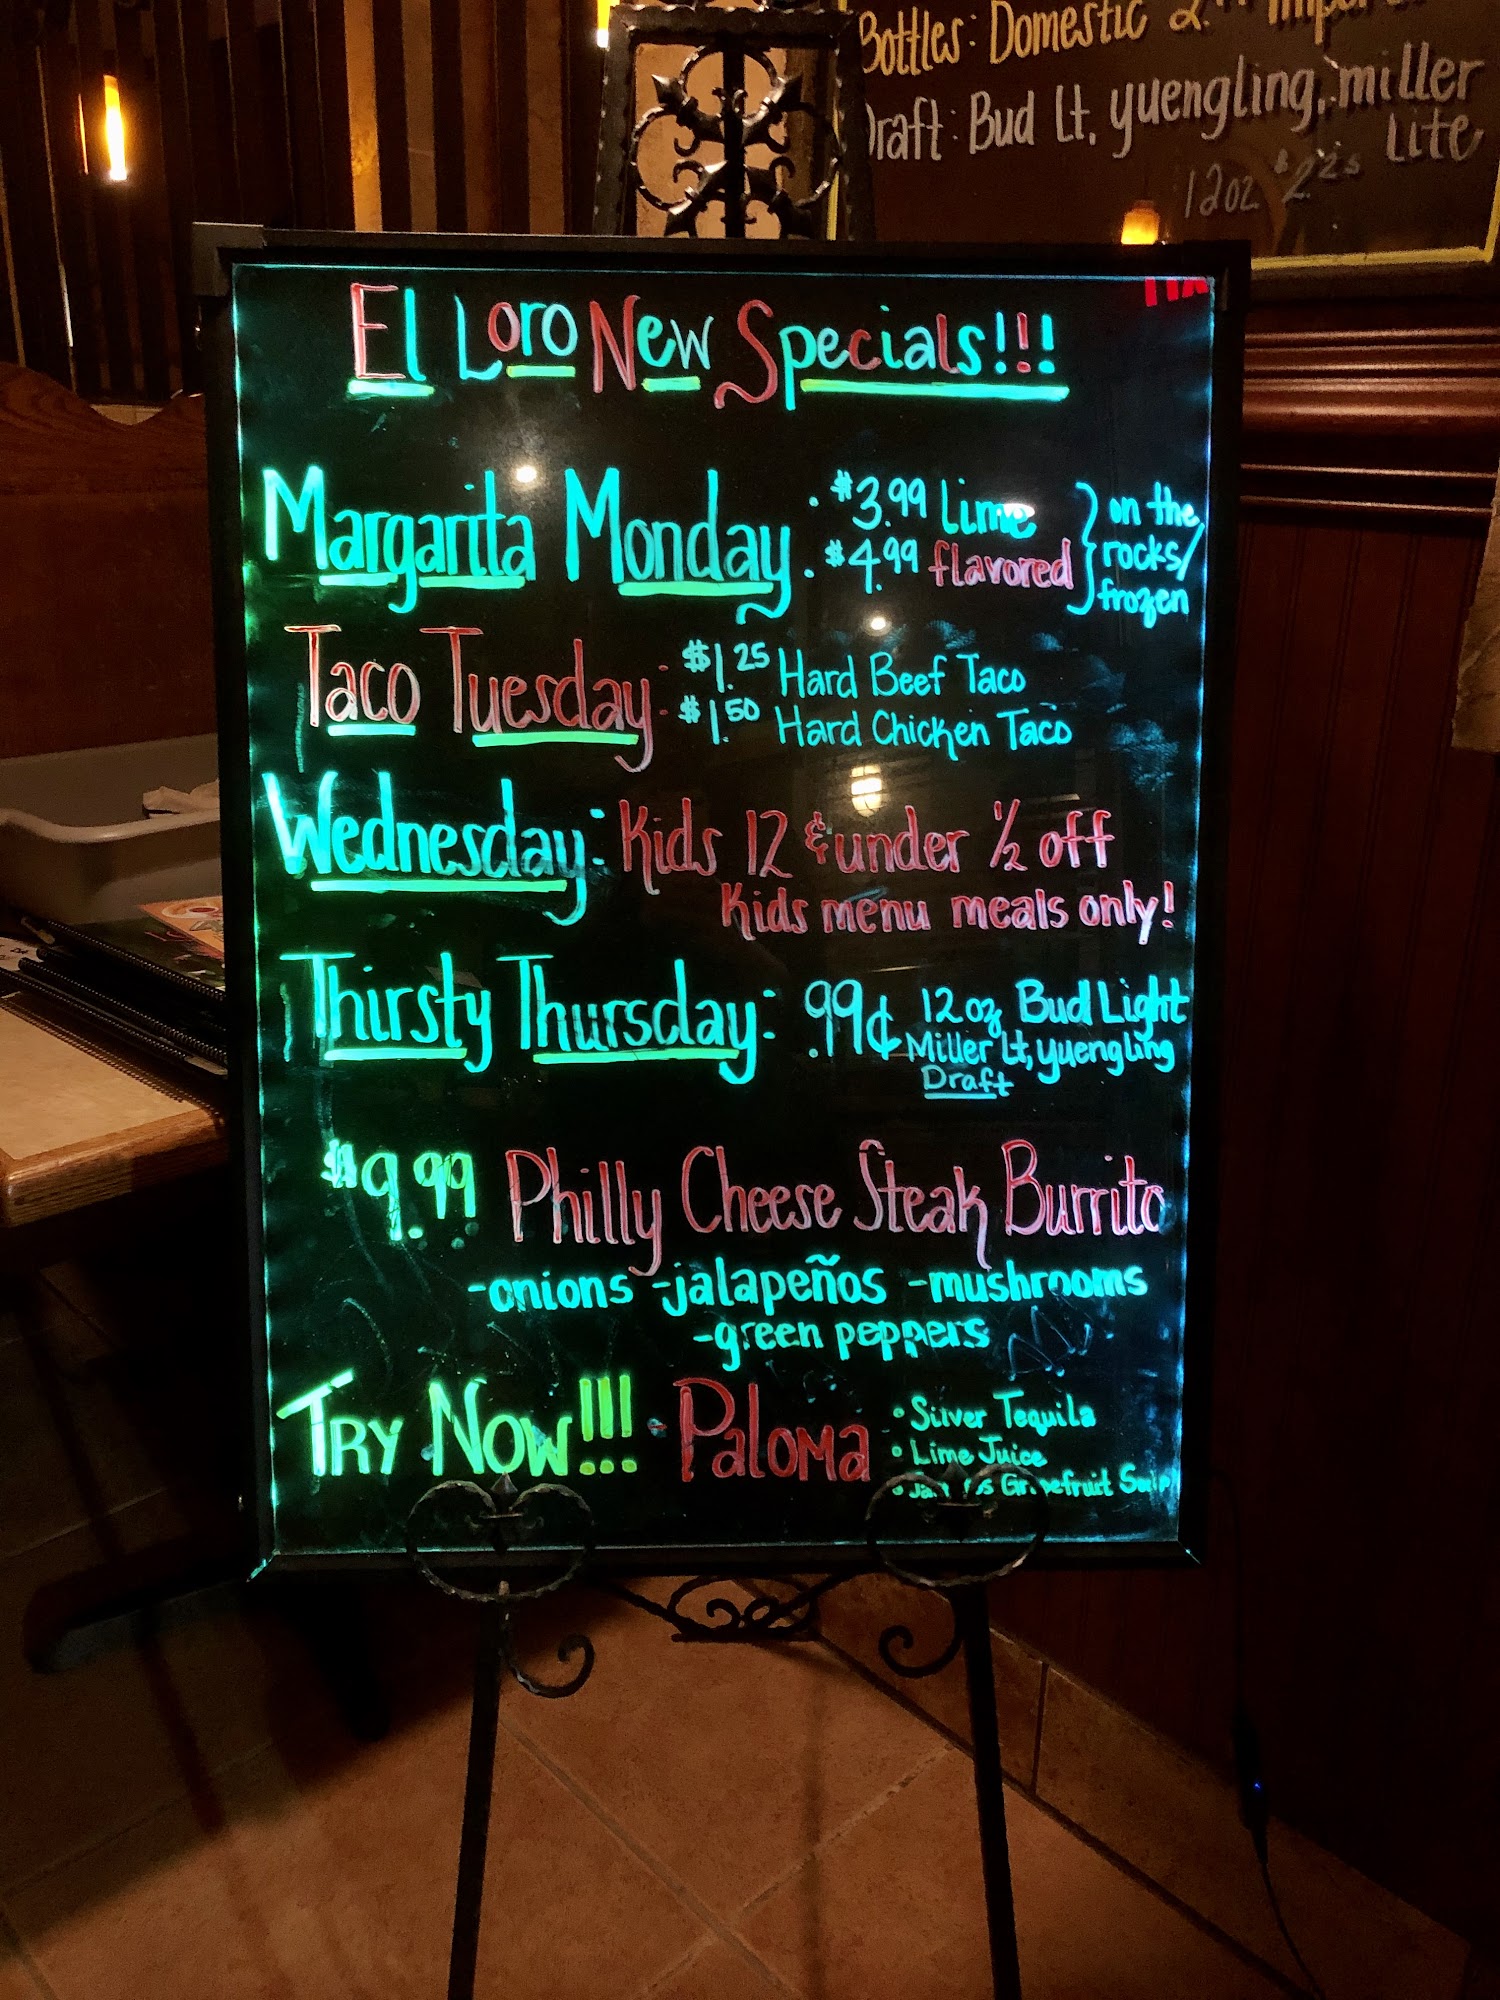 Bottles: Domestic 2.
Draft: Bud Lt, yuengling, miller
Lite
12oz $2.25
El Loro New Specials!!!
Margarita Monday: $3.99 Lime } on the
$4.99 flavored } rocks/
frozen
Taco Tuesday: $1.25 Hard Beef Taco
$1.50 Hard Chicken Taco
Wednesday: Kids 12 & under ½ off
Kids menu meals only!
Thirsty Thursday: .99¢ 12oz Bud Light
Miller Lt, yuengling
Draft
$9.99 Philly Cheese Steak Burrito
-onions -jalapeños -mushrooms
-green peppers
Try Now!!! • Paloma • Silver Tequila
• Lime Juice
• Grapefruit